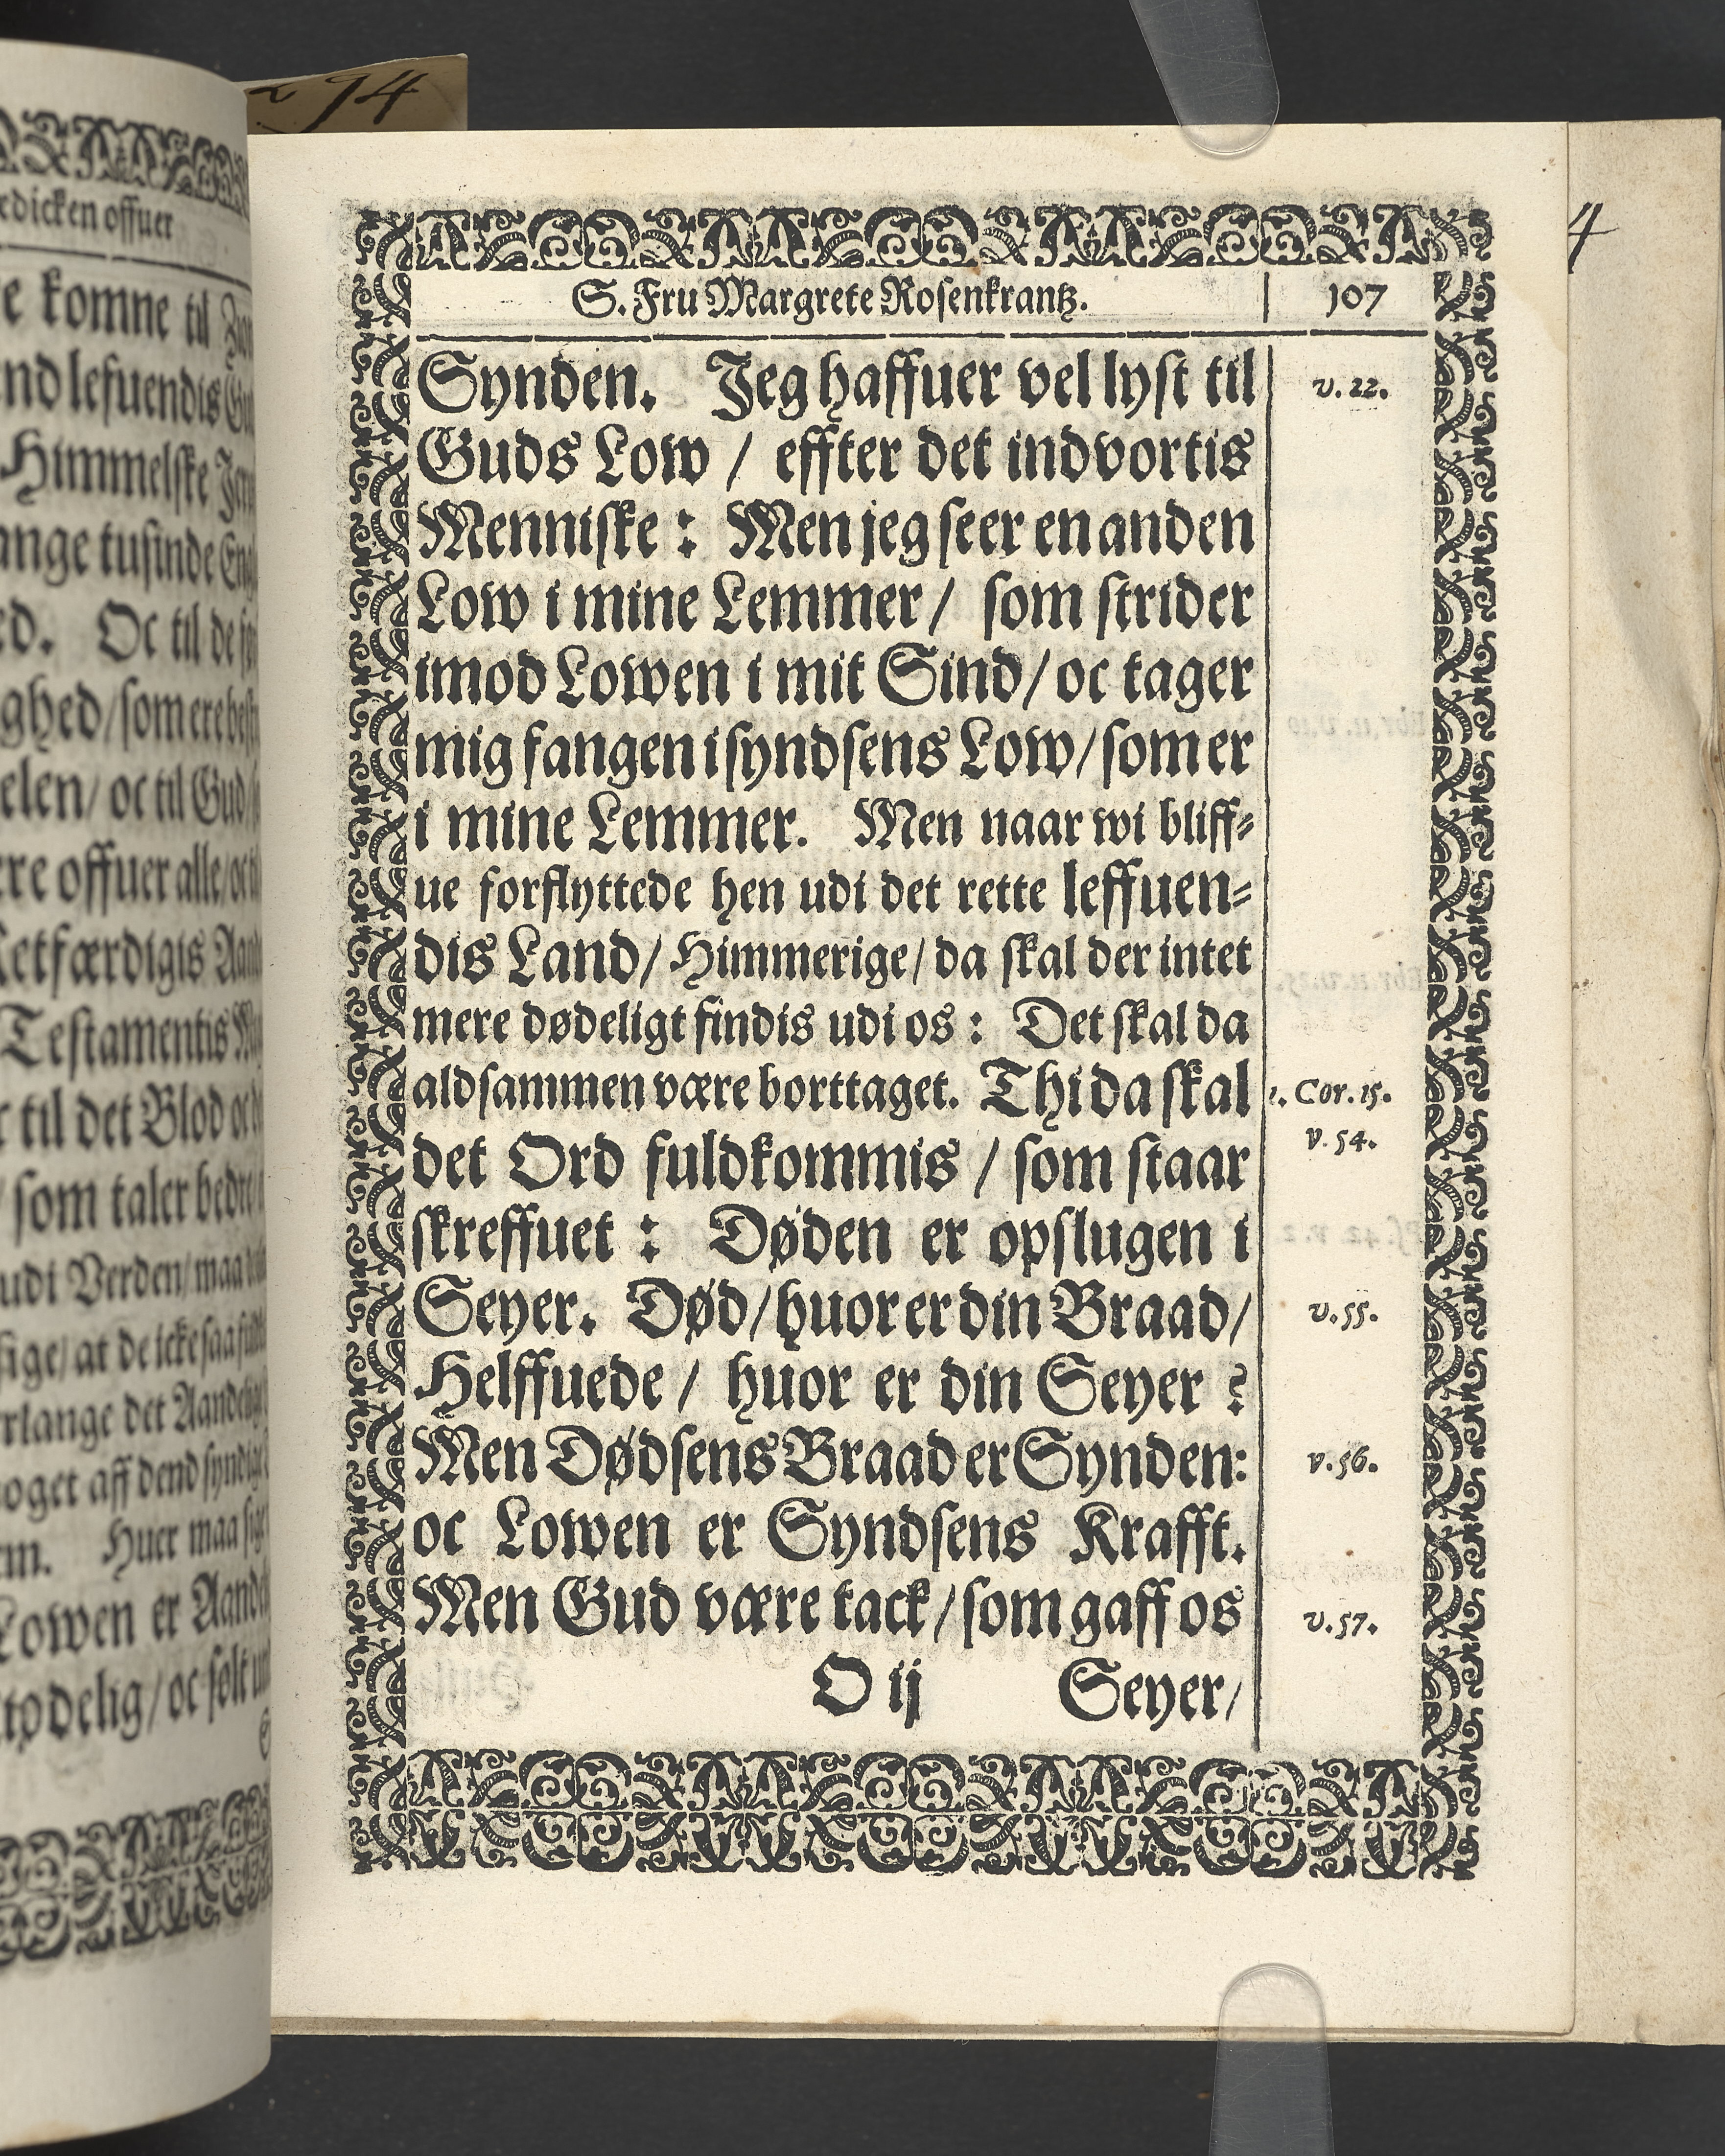 294
edicken offuer
e komne til
nd lefuendis
Himmelske
ange tusinde
ed. Oc til de
ghed/som ere
elen/ oc til Gud/
re offuer alle/
Retfærdigis
Testamentis
til det Blod
/ som taler bedre/
udi Verden/maa
sige/ at de icke saa
rlange det
oget aff dend
Huer maa
Lowen er
delig/oc solt
4
S. Fru Margrete Rosenkrantz.
107
Synden. Jeg haffuer vel lyst til
v. 22.
Guds Low / effter det indvortis
Menniske: Men jeg seer en anden
Low i mine Lemmer/ som strider
imod Lowen i mit Sind/ oc tager
mig fangen i syndsens Low/som er
i mine Lemmer. Men naar wi bliff-
ue forflyttede hen udi det rette leffuen-
dis Land/ Himmerige/ da skal der intet
mere dødeligt findis udi os: Det skal da
aldsammen være borttaget. Thi da skal
1. Cor. 15.
v. 54.
det Ord fuldkommis / som staar
skreffuet: Døden er opslugen i
Seyer. Død/ huor er din Braad/
v. 55.
Helffuede / huor er din Seyer?
Men Dødsens Braad er Synden:
v. 56.
oc Lowen er Syndsens Krafft.
Men Gud være tack/ som gaff os
v. 57.
O ij
Seyer/